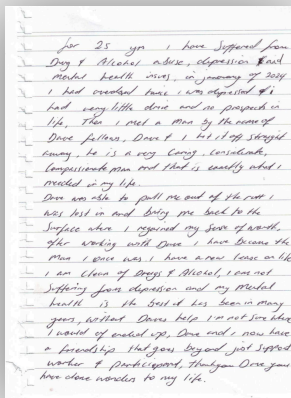 for 25 yrs i have suffered from
Drug & Alcohol abuse, depression & and
mental health issues, in january of 2024
I had overdosed twice i was depressed & i
had very little drive and no prospects in
life. Then i met a man by the name of
Dave fellows, Dave & I hit it off straight
away, he is a very caring, considerate,
Compassionate man and that is exactly what i
needed in my life.
Dave was able to pull me out of the rutt i
was lost in and bring me back to the
surface where i regained my sense of worth.
after working with Dave i have become the
man i once was i have a new lease on life
i am clean of Drugs & Alcohol, i am not
suffering from depression and my mental
health is the best it has been in many
years, without Daves help i'm not sure where
i would of ended up, Dave and i now have
a friendship that goes beyond just support
worker & participant, thankyou Dave you
have done wonders to my life.